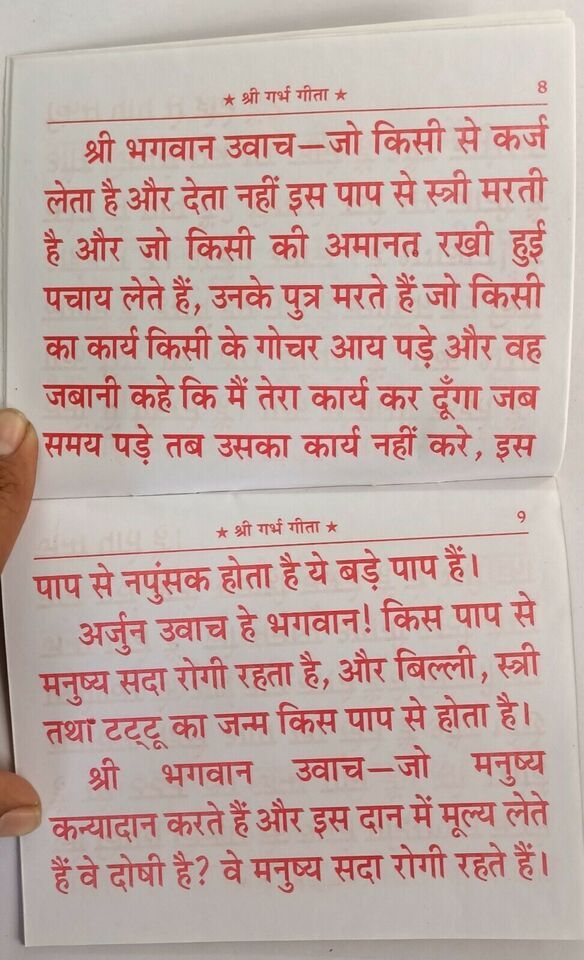 ★ श्री गर्भ गीता ★ 8
श्री भगवान उवाच—जो किसी से कर्ज
लेता है और देता नहीं इस पाप से स्त्री मरती
है और जो किसी की अमानत रखी हुई
पचाय लेते हैं, उनके पुत्र मरते हैं जो किसी
का कार्य किसी के गोचर आय पड़े और वह
जबानी कहे कि मैं तेरा कार्य कर दूँगा जब
समय पड़े तब उसका कार्य नहीं करे, इस
★ श्री गर्भ गीता ★ 9
पाप से नपुंसक होता है ये बड़े पाप हैं।
अर्जुन उवाच हे भगवान! किस पाप से
मनुष्य सदा रोगी रहता है, और बिल्ली, स्त्री
तथा टटट्टू का जन्म किस पाप से होता है।
श्री भगवान उवाच—जो मनुष्य
कन्यादान करते हैं और इस दान में मूल्य लेते
हैं वे दोषी है? वे मनुष्य सदा रोगी रहते हैं।